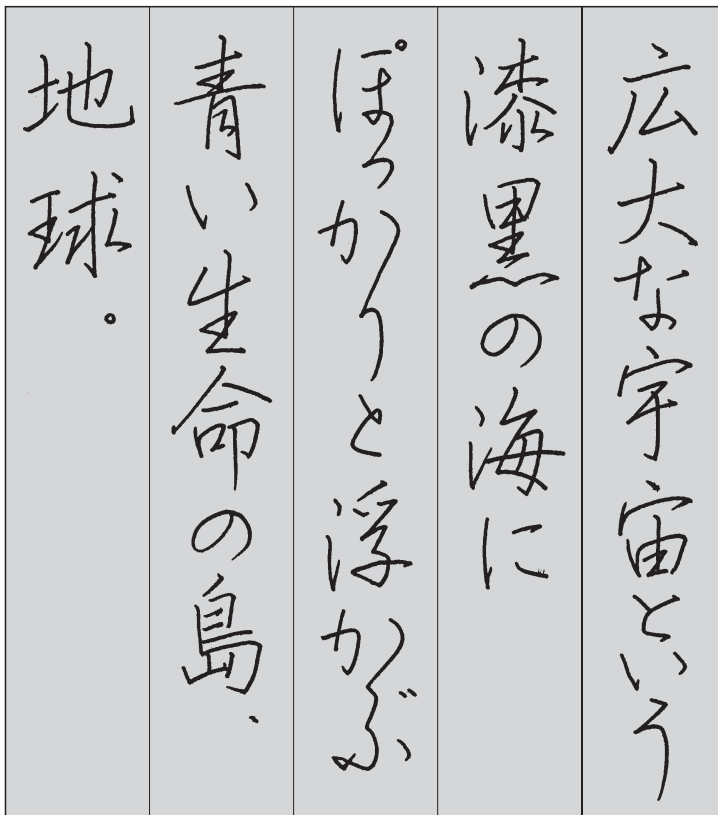 広大な宇宙という
漆黒の海に
ぽっかりと浮かぶ
青い生命の島、
地球。